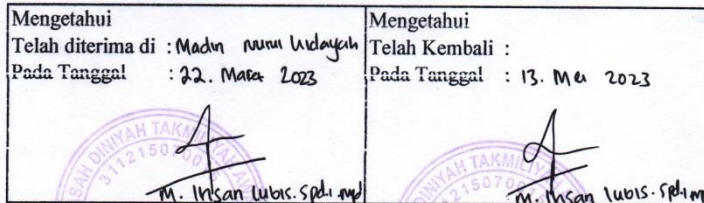 Mengetahui
Telah diterima di : Madin Nurul Hidayah
Pada Tanggal : 22. Maret 2023
M. Ihsan Lubis. Spd.i.mpd
Mengetahui
Telah Kembali :
Pada Tanggal : 13. Mei 2023
M. Ihsan Lubis. Spd.i mp
SAH DINIYAH TAKMILIYAH AW
311215070
NIYAH TAKMILIY
215070